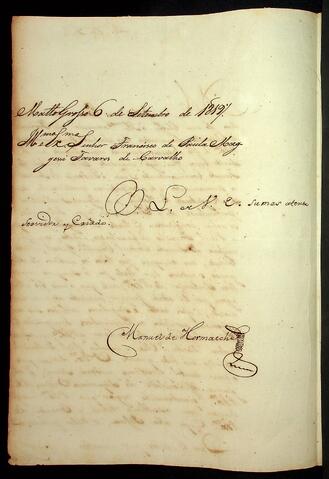 Matto Grosso 6 de Setembro de 1819,,
Illmo e Exmo Senhor Francisco de Paula Mag
gessi Tavares de Carvalho
D. L. a V. E. sumas atento
servidor y Criado
Manuel de Hormaechea